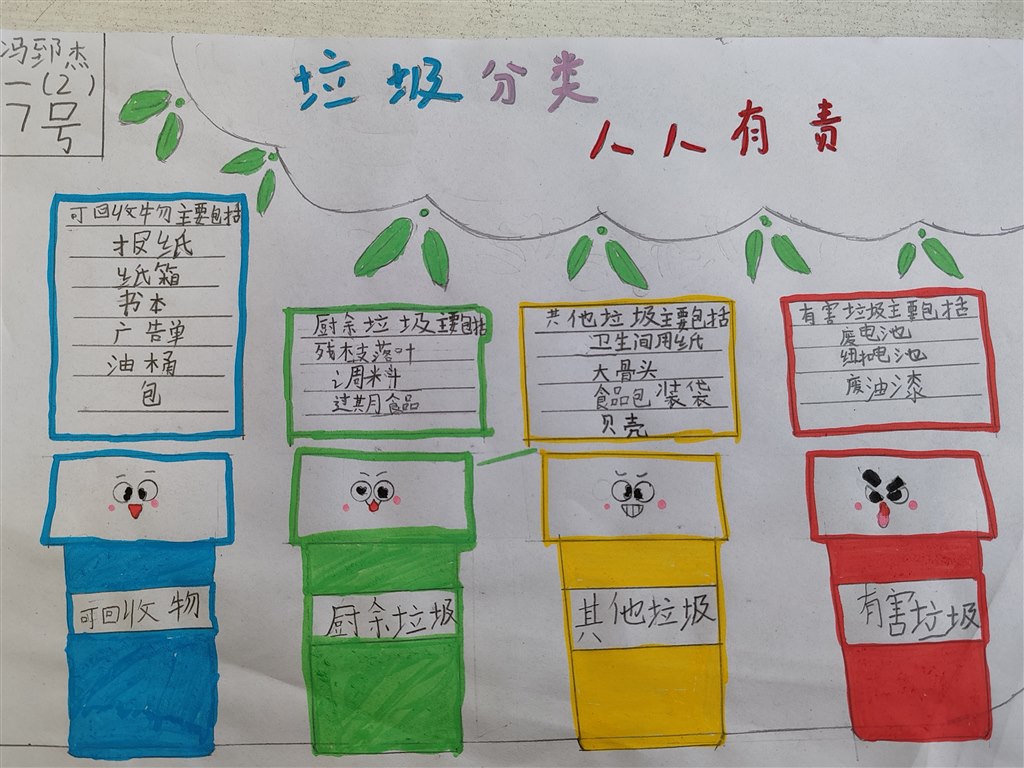 冯郅杰
一(2)
7号
垃圾分类
人人有责
可回收物主要包括
报纸
纸箱
书本
广告单
油桶
包
厨余垃圾主要包括
残枝落叶
调料
过期食品
其他垃圾主要包括
卫生间用纸
大骨头
食品包装袋
贝壳
有害垃圾主要包括
废电池
纽扣电池
废油漆
可回收物
厨余垃圾
其他垃圾
有害垃圾